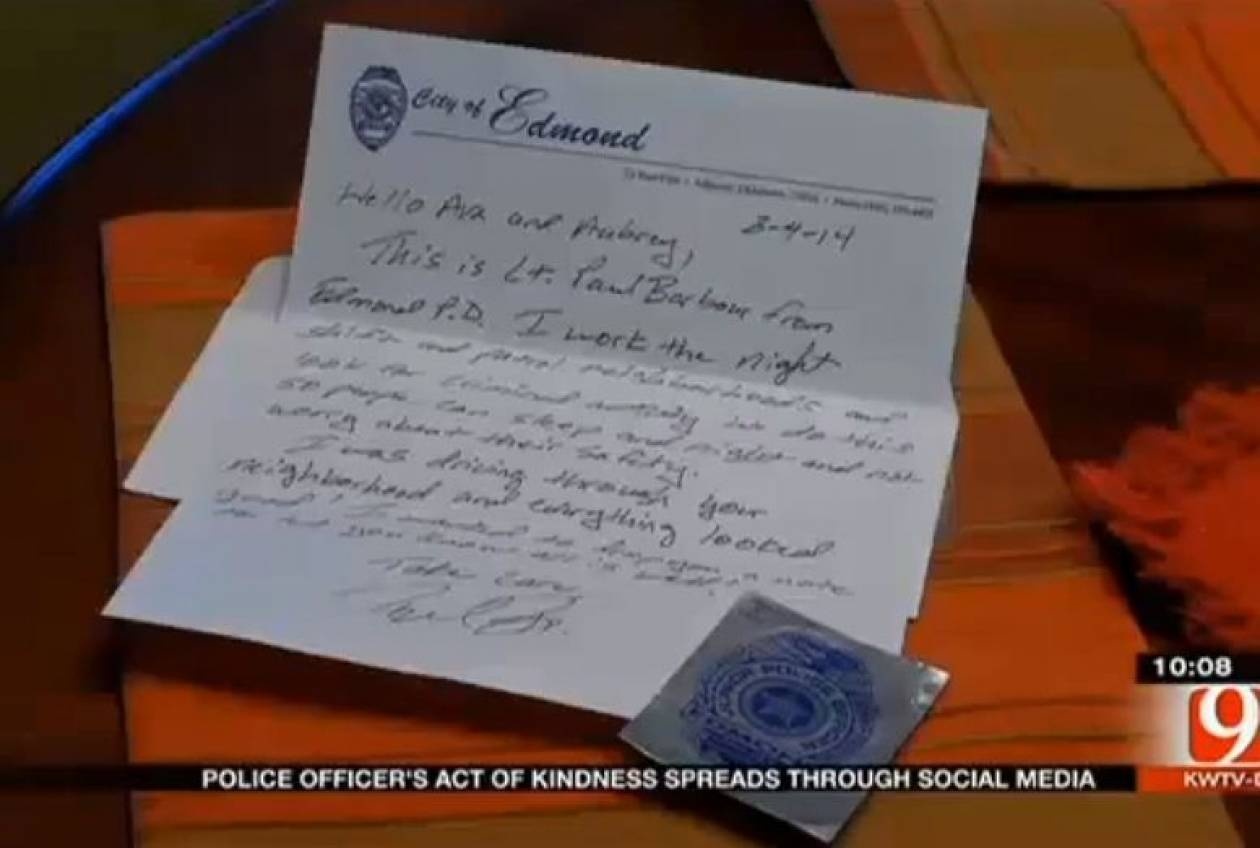 City of Edmond
Hello Ava and Aubrey,
3-4-14
This is Lt. Paul Barbour from
Edmond P.D. I work the night
shift and patrol neighborhoods and
look for criminal activity we do this
so people can sleep and night and not
worry about their safety.
I was driving through your
neighborhood and everything looked
good! I wanted to drop you a note
to let you know all is well!
Take care,
10:08
9
KWTV-D
POLICE OFFICER'S ACT OF KINDNESS SPREADS THROUGH SOCIAL MEDIA